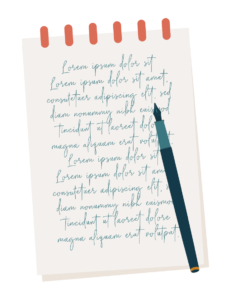 Lorem ipsum dolor sit
Lorem ipsum dolor sit amet,
consutetuer adipiscing elit, sed
diam nonummy nibh euismod
tincidunt ut laoreet dolore
magna aliquam erat volutpat
Lorem ipsum dolor sit
Lorem ipsum dolor sit am
consutetuer adipiscing elit,
diam nonummy nibh euismo
tincidunt ut laoreet dolore
magna aliquam erat volutpat